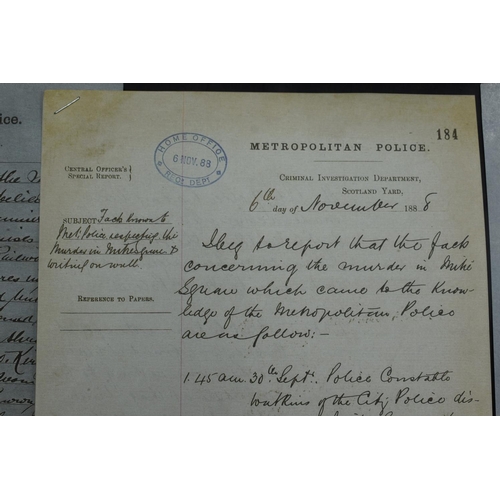 184
HOME OFFICE
6 NOV. 88
DEPT.
METROPOLITAN POLICE.
CENTRAL OFFICER'S
SPECIAL REPORT.
CRIMINAL INVESTIGATION DEPARTMENT,
SCOTLAND YARD,
6th day of November 1888
SUBJECT Facts known to
Met: Police respecting the
Murder in Mitre Square &
writing on wall.
REFERENCE TO PAPERS.
I beg to report that the facts
concerning the murder in Mitre
Square which came to the know-
ledge of the Metropolitan Police
are as follow:-
1.45 am 30th Sept. Police Constable
Watkins of the City Police dis-
ice.